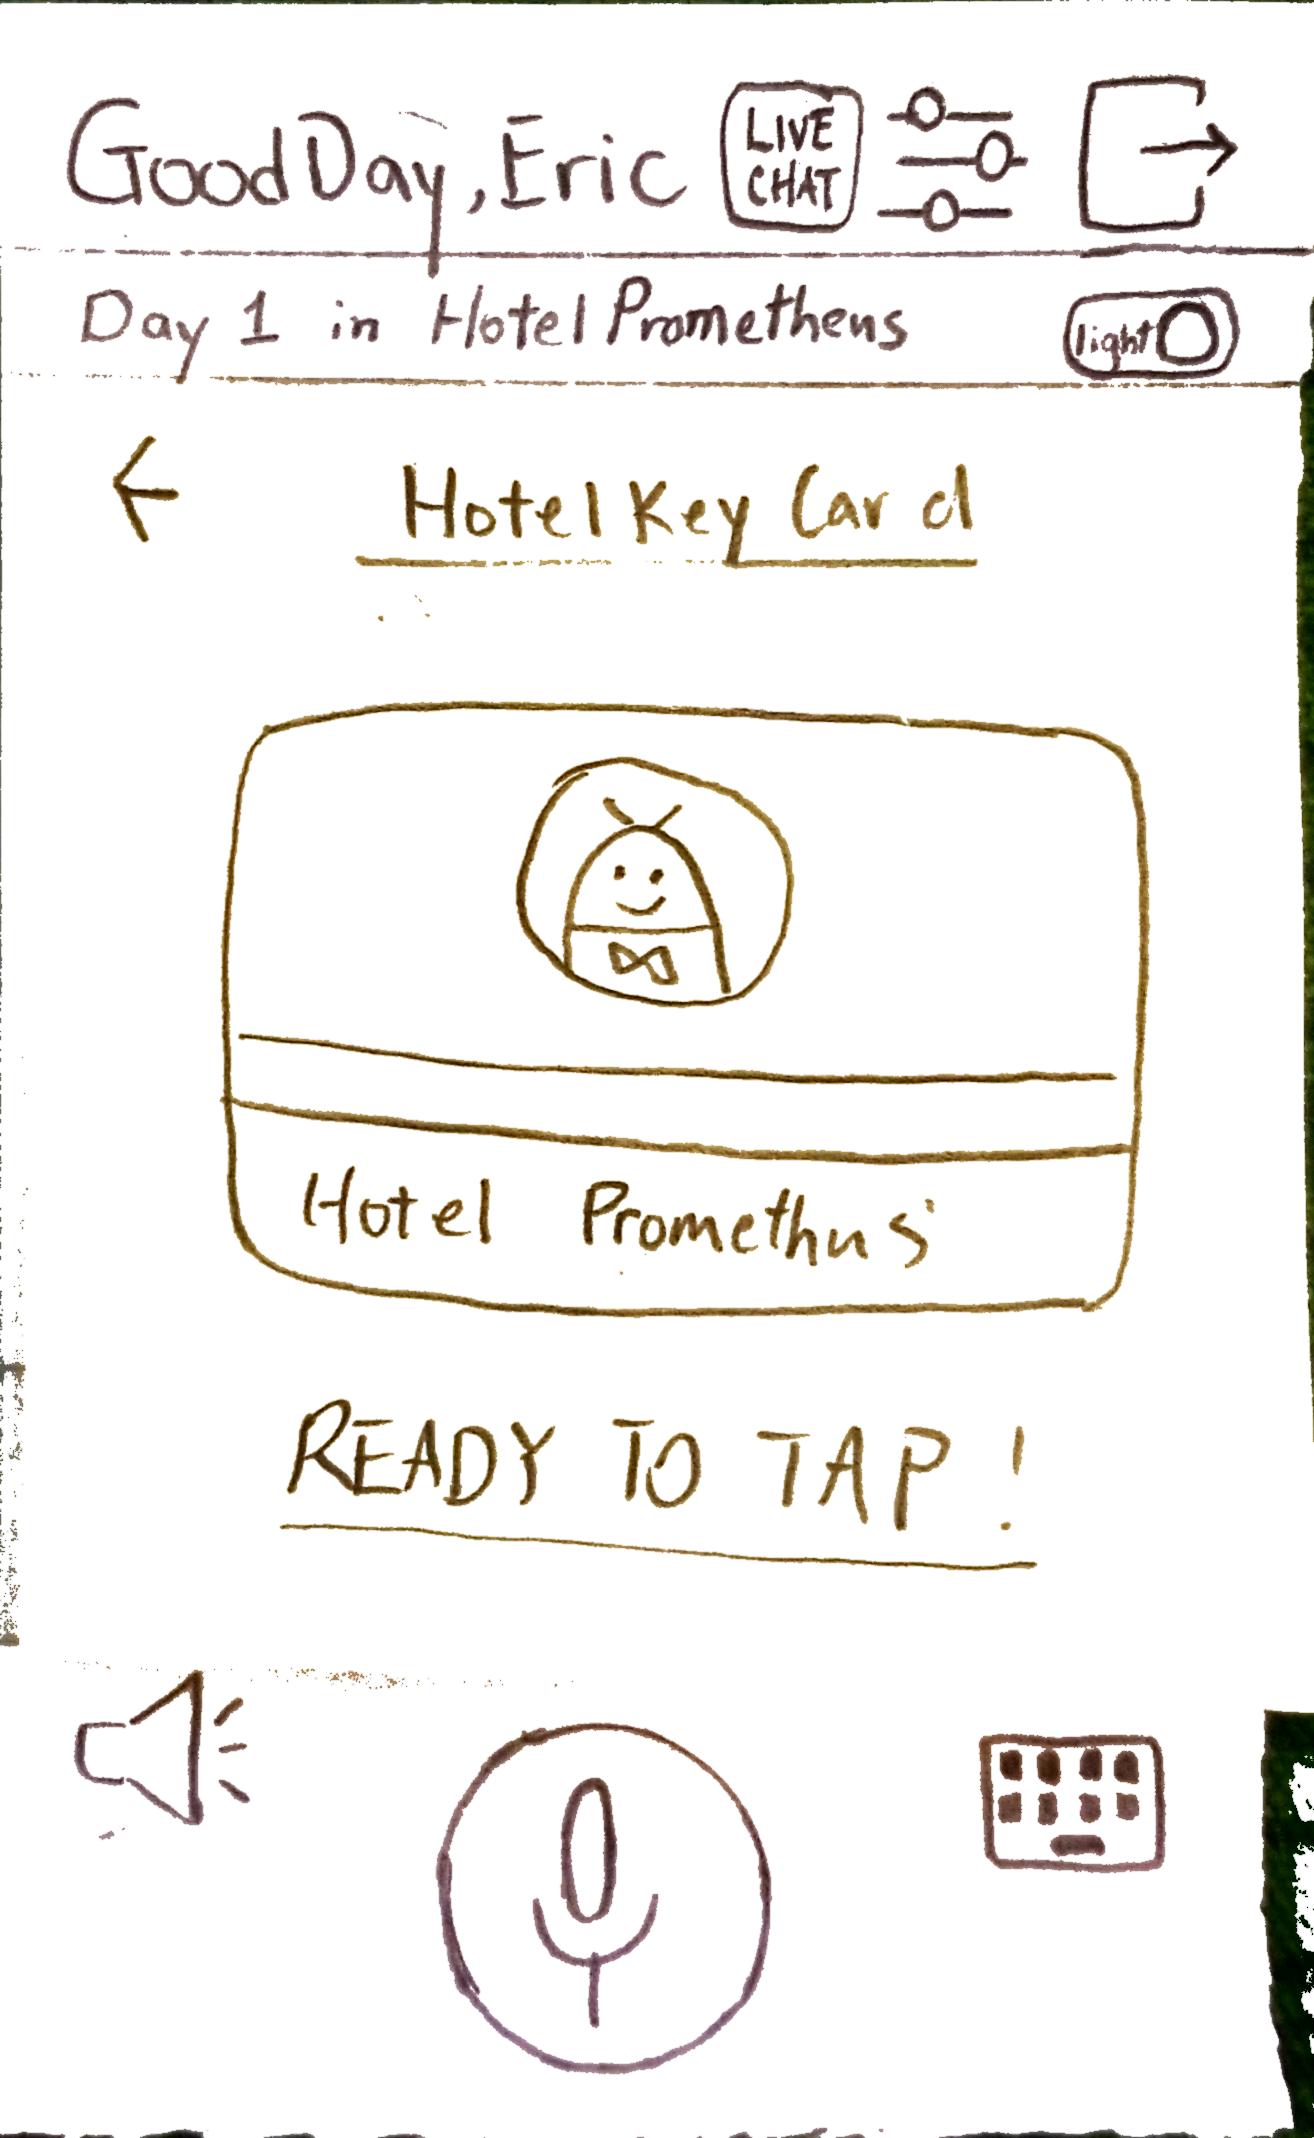 Good Day, Eric
LIVE CHAT
Day 1 in Hotel Prometheus
light
Hotel Key Card
Hotel Promethus
READY TO TAP!